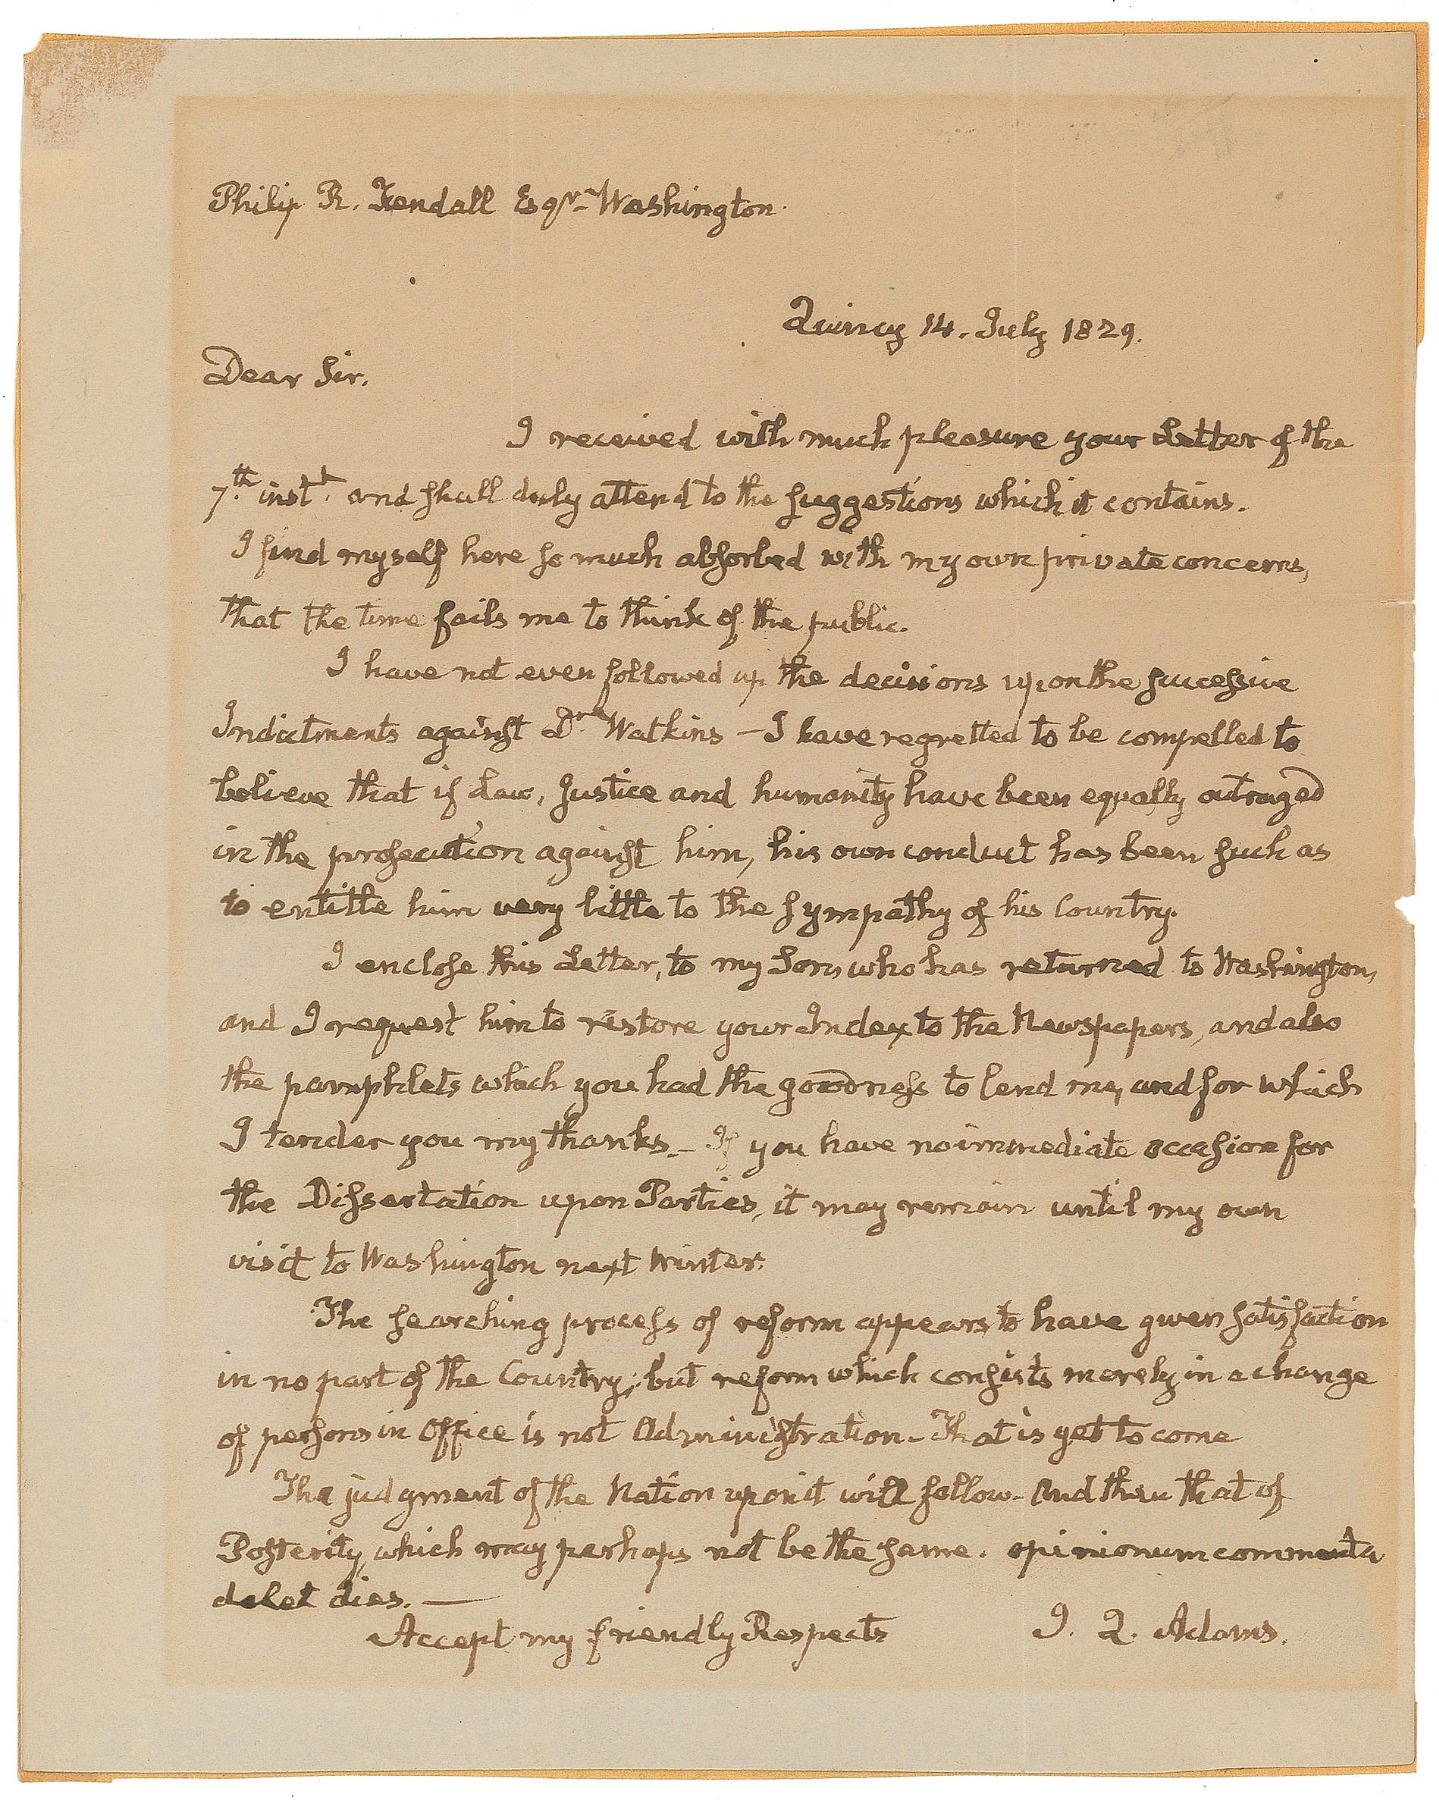 Philip R. Fendall Esqr. Washington.
Quincy 14. July 1829.
Dear Sir.
I received with much pleasure your Letter of the
7th. instt. and shall duly attend to the suggestions which it contains.
I find myself here so much absorbed with my own private concerns,
that the time fails me to think of the public.
I have not even followed up the decisions upon the successive
Indictments against Dr. Watkins — I have regretted to be compelled to
believe that if Law, Justice and humanity have been equally outraged
in the prosecution against him, his own conduct has been such as
to entitle him very little to the sympathy of his Country.
I enclose this Letter, to my Son who has returned to Washington,
and I request him to restore your Index to the Newspapers, and also
the pamphlets which you had the goodness to lend me, and for which
I tender you my thanks — If you have no immediate occasion for
the Dissertation upon Parties, it may remain until my own
visit to Washington next Winter.
The searching process of reform appears to have given satisfaction
in no part of the Country; but reform which consists merely in a change
of persons in Office is not Administration — That is yet to come
The judgment of the Nation upon it will follow — And then that of
Posterity, which may perhaps not be the same. opinionum commenta
delet dies. —
Accept my friendly Respects J. Q. Adams.